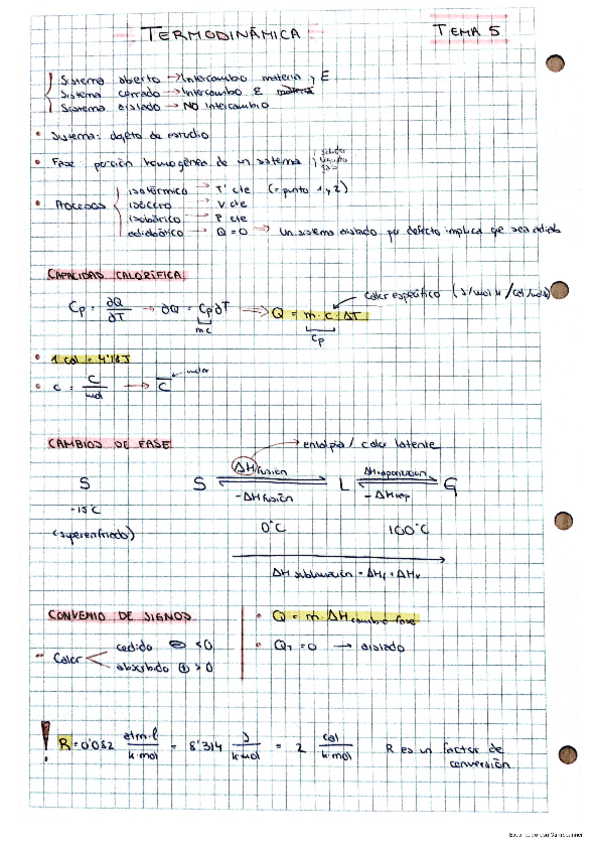 TERMODINÁMICA TEMA 5
Sistema abierto → Intercambio materia y E
Sistema cerrado → Intercambio E
Sistema aislado → NO intercambio
• Sistema: objeto de estudio
• Fase: porción homogénea de un sistema
• Procesos
isotérmico → Tª cte (= punto 1 y 2)
isócoro → V cte
isobárico → P cte
adiabático → Q = 0 → un sistema aislado por defecto implica que sea adiab
CAPACIDAD CALORÍFICA
Cp = ∂Q/∂T → ∂Q = Cp∂T → Q = m · c · ΔT
mc
Cp
calor específico
• 1 cal = 4'18 J
• c = C/mol → C̄
molar
CAMBIOS DE FASE
entalpía / calor latente
S S ΔH fusión L ΔH vaporización G
-ΔH fusión -ΔH vap
-15 C 0°C 100°C
(superenfriado)
ΔH sublimación = ΔHf + ΔHv
CONVENIO DE SIGNOS
- Calor
cedido ⊖ < 0
absorbido ⊕ > 0
• Q = m · ΔH cambio fase
• QT = 0 → aislado
! R = 0'082 atm·l/k·mol = 8'314 J/k·mol = 2 cal/k·mol R es un factor de
conversión